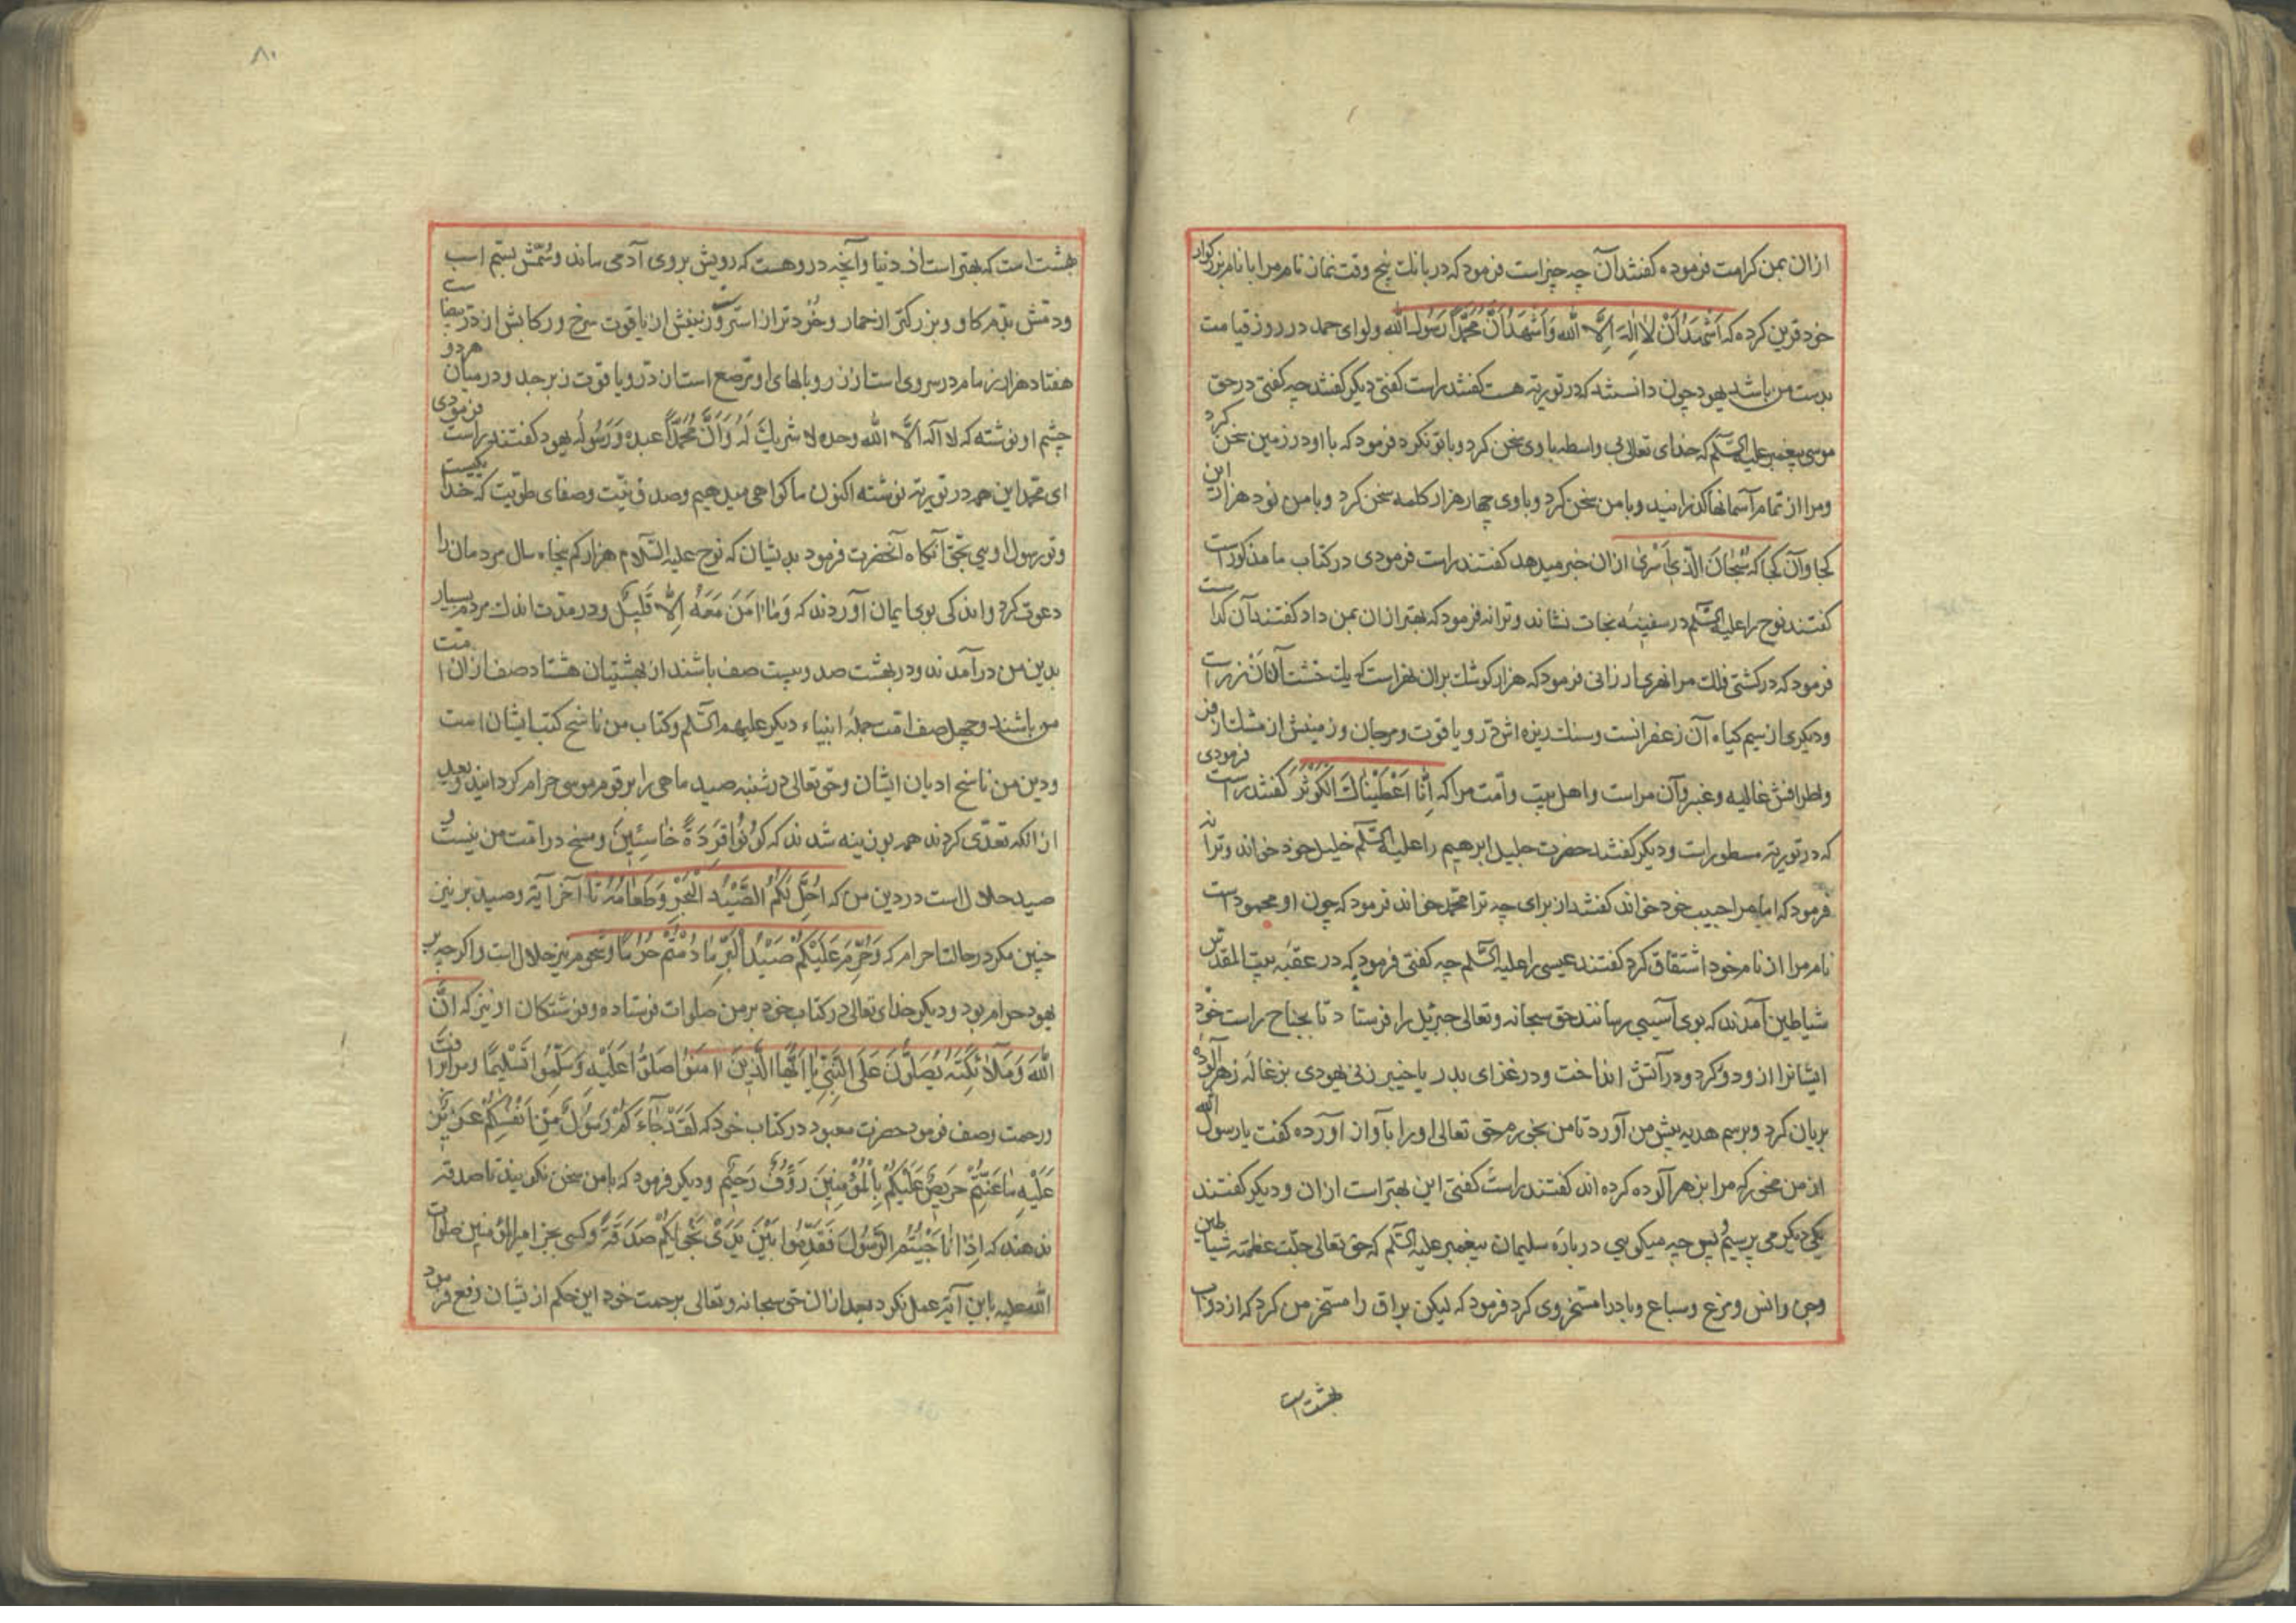 ازان بمن کرامت فرموده کفتند آن چه چیز است فرمود که در بانك پنج وقت نماز نام مرا با نام بزرکوار
خود قرین کرده که اَشْهَدُ اَنْ لَا اِلٰهَ اِلَّا اللّٰه وَاَشْهَدُ اَنَّ مُحَمَّداً رَسُولُ اللّٰه ولوای حمد در روز قیامت
بدست من باشد یهود چون دانستند که در توریة هست کفتند راست کفتی دیکر کفتند چه کفتی در حق
موسی پیغمبر علیه السّلم که خدای تعالی بی واسطه با وی سخن کرد و با تو نکرد فرمود که با او در زمین سخن کرد
ومرا از تمام آسمانها کذرانید وبا من سخن کرد وبا وی چهار هزار کلمه سخن کرد وبا من نود هزار این
کجا وآن کجا که سُبْحَانَ الَّذِي اَسْرٰی ازان خبر میدهد کفتند راست فرمودی در کتاب ما مذکور است
کفتند نوح را علیه السّلم در سفینهٔ نجات نشاند وترا نه فرمود که بهتر ازان بمن داد کفتند آن کدا ست
فرمود که در کشتی فلك مرا نهری ارزانی فرمود که هزار کوشك بران نهر است که یك خشت آن از زر است
ودیکری از سیم کیاه آن زعفرانست وسنك ریزه اش در ویاقوت ومرجان وزمینش از مشك از فر
واطرافش غالیه وعنبر وآن مراست واهل بیت وامّت مرا که اِنَّا اَعْطَيْنَاكَ الْكَوْثَرَ کفتند راست فرمودی
که در توریة مسطور است ودیکر کفتند حضرت جلیل ابرهیم را علیه السّلم خلیل خود خواند وترا نه
فرمود که اما مرا حبیب خود خواند کفتند از برای چه ترا محمّد خواند فرمود که چون او محمود است
نام مرا از نام خود اشتقاق کرد کفتند عیسی را علیه السّلم چه کفتی فرمود که در عقبهٔ بیت المقدس
شیاطین آمدند که بوی آسیبی رسانند حق سبحانه وتعالی جبرئیل را فرستاد تا بجناح راست خود
ایشانرا ازو دور کرد ودر آتش انداخت ودر غزای بدر یا خیبر زنی یهودی بزغاله زهر آلوده
بریان کرد وبرسم هدیه پیش من آورد تا من بخورم حق تعالی او را بآواز آورده کفت یا رسول الله
از من مخور که مرا بزهر آلوده کرده اند کفتند راست کفتی این بهتر است ازان ودیکر کفتند
یکی دیکر می پرسیم پس چه میکویی در بارهٔ سلیمان پیغمبر علیه السّلم که حق تعالی جلّت عظمته شیاطین
وجن وانس ومرغ وسباع وباد را مسخر وی کرد فرمود که لیکن براق را مسخر من کرد که از دواب
بهشت است
۸۰
بهشت است که بهتر است از دنیا وآنچه دروهست که رویش بروی آدمی ماند وسُمّش بسُمّ اسب
ودمش بدم کاو وبزرکتر از حمار وخُردتر از استر وزینش از یاقوت سرخ ورکابش از درّ بیضا ست
هفتاد هزار زمام در سر وی است از زر وبالهای او مرصع است از در ویاقوت وزبرجد ودر میان هر دو
چشم او نوشته که لا اله الّا الله وحده لا شریك لَهُ وَاَنَّ مُحَمَّداً عبده وَرَسُولُه یهود کفتند راست فرمودی
ای محمّد این همه در توریة نوشته اکنون ما کواهی میدهیم وصدق نیّت وصفای طویّت که خدا یکیست
وتو رسول اویی بحق آنکاه آنحضرت فرمود بدیشان که نوح علیه السّلام هزار کم پنجاه سال مردمان را
دعوت کرد واندکی بوی ایمان آوردند که وَمَا اٰمَنَ مَعَهُ اِلَّا قَلِیلٌ ودر مدّت اندك مردم بسیار
بدین من درآمدند ودر بهشت صد وبیست صف باشند از بهشتیان هشتاد صف ازان امّت
من باشند وچهل صف امّت جملهٔ انبیاء دیکر علیهم السّلم وکتاب من ناسخ کتب ایشان است
ودین من ناسخ ادیان ایشان وحق تعالی در شنبه صید ماهی را بر قوم موسی حرام کردانید وبعد
ازانکه تعدّی کردند همه بوزینه شدند که كُونُوا قِرَدَةً خَاسِئِينَ ومسخ در امّت من نیست و
صید حلال است در دین من که اُحِلَّ لَكُمْ الصَّيْدُ الْبَحْرِ وَطَعَامُهُ تا آخر آیة وصید بر نیز
چنین مکر در حالت احرام که وَحُرِّمَ عَلَيْكُمْ صَيْدُ الْبَرِّ مَا دُمْتُمْ حُرُمًا وشحوم نیز حلال است واکرچه بر
یهود حرام بود ودیکر خدای تعالی در کتاب خود بر من صلوات فرستاده وفرشتکان او نیز که اِنَّ
اللّٰهَ وَمَلَآئِكَتَهُ يُصَلُّونَ عَلَى النَّبِيِّ يَا اَيُّهَا الَّذِينَ اٰمَنُوا صَلُّوا عَلَيْهِ وَسَلِّمُوا تَسْلِيمًا ومرا برأفت
ورحمت وصف فرمود حضرت معبود در کتاب خود که لَقَدْ جَآءَكُمْ رَسُولٌ مِنْ اَنْفُسِكُمْ عَزِيزٌ
عَلَيْهِ مَا عَنِتُّمْ حَرِيصٌ عَلَيْكُمْ بِالْمُؤْمِنِينَ رَؤُفٌ رَحِيمٌ ودیکر فرمود که با من سخن نکویند تا صدقه
ندهند که اِذَا نَاجَيْتُمُ الرَّسُولَ فَقَدِّمُوا بَيْنَ يَدَيْ نَجْوٰيكُمْ صَدَقَةً وکسی بجز امیرالمؤمنین صلوات
الله علیه باین آیة عمل نکرد بعد ازان حق سبحانه وتعالی برحمت خود این حکم از یشان رفع فرمود